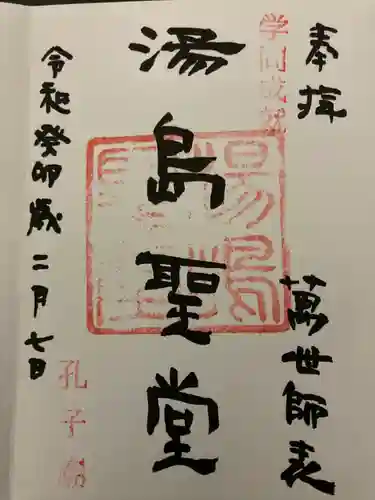 奉拝
萬世師表
学問成就
湯島聖堂
湯島聖堂
孔子廟
令和癸卯歳二月七日